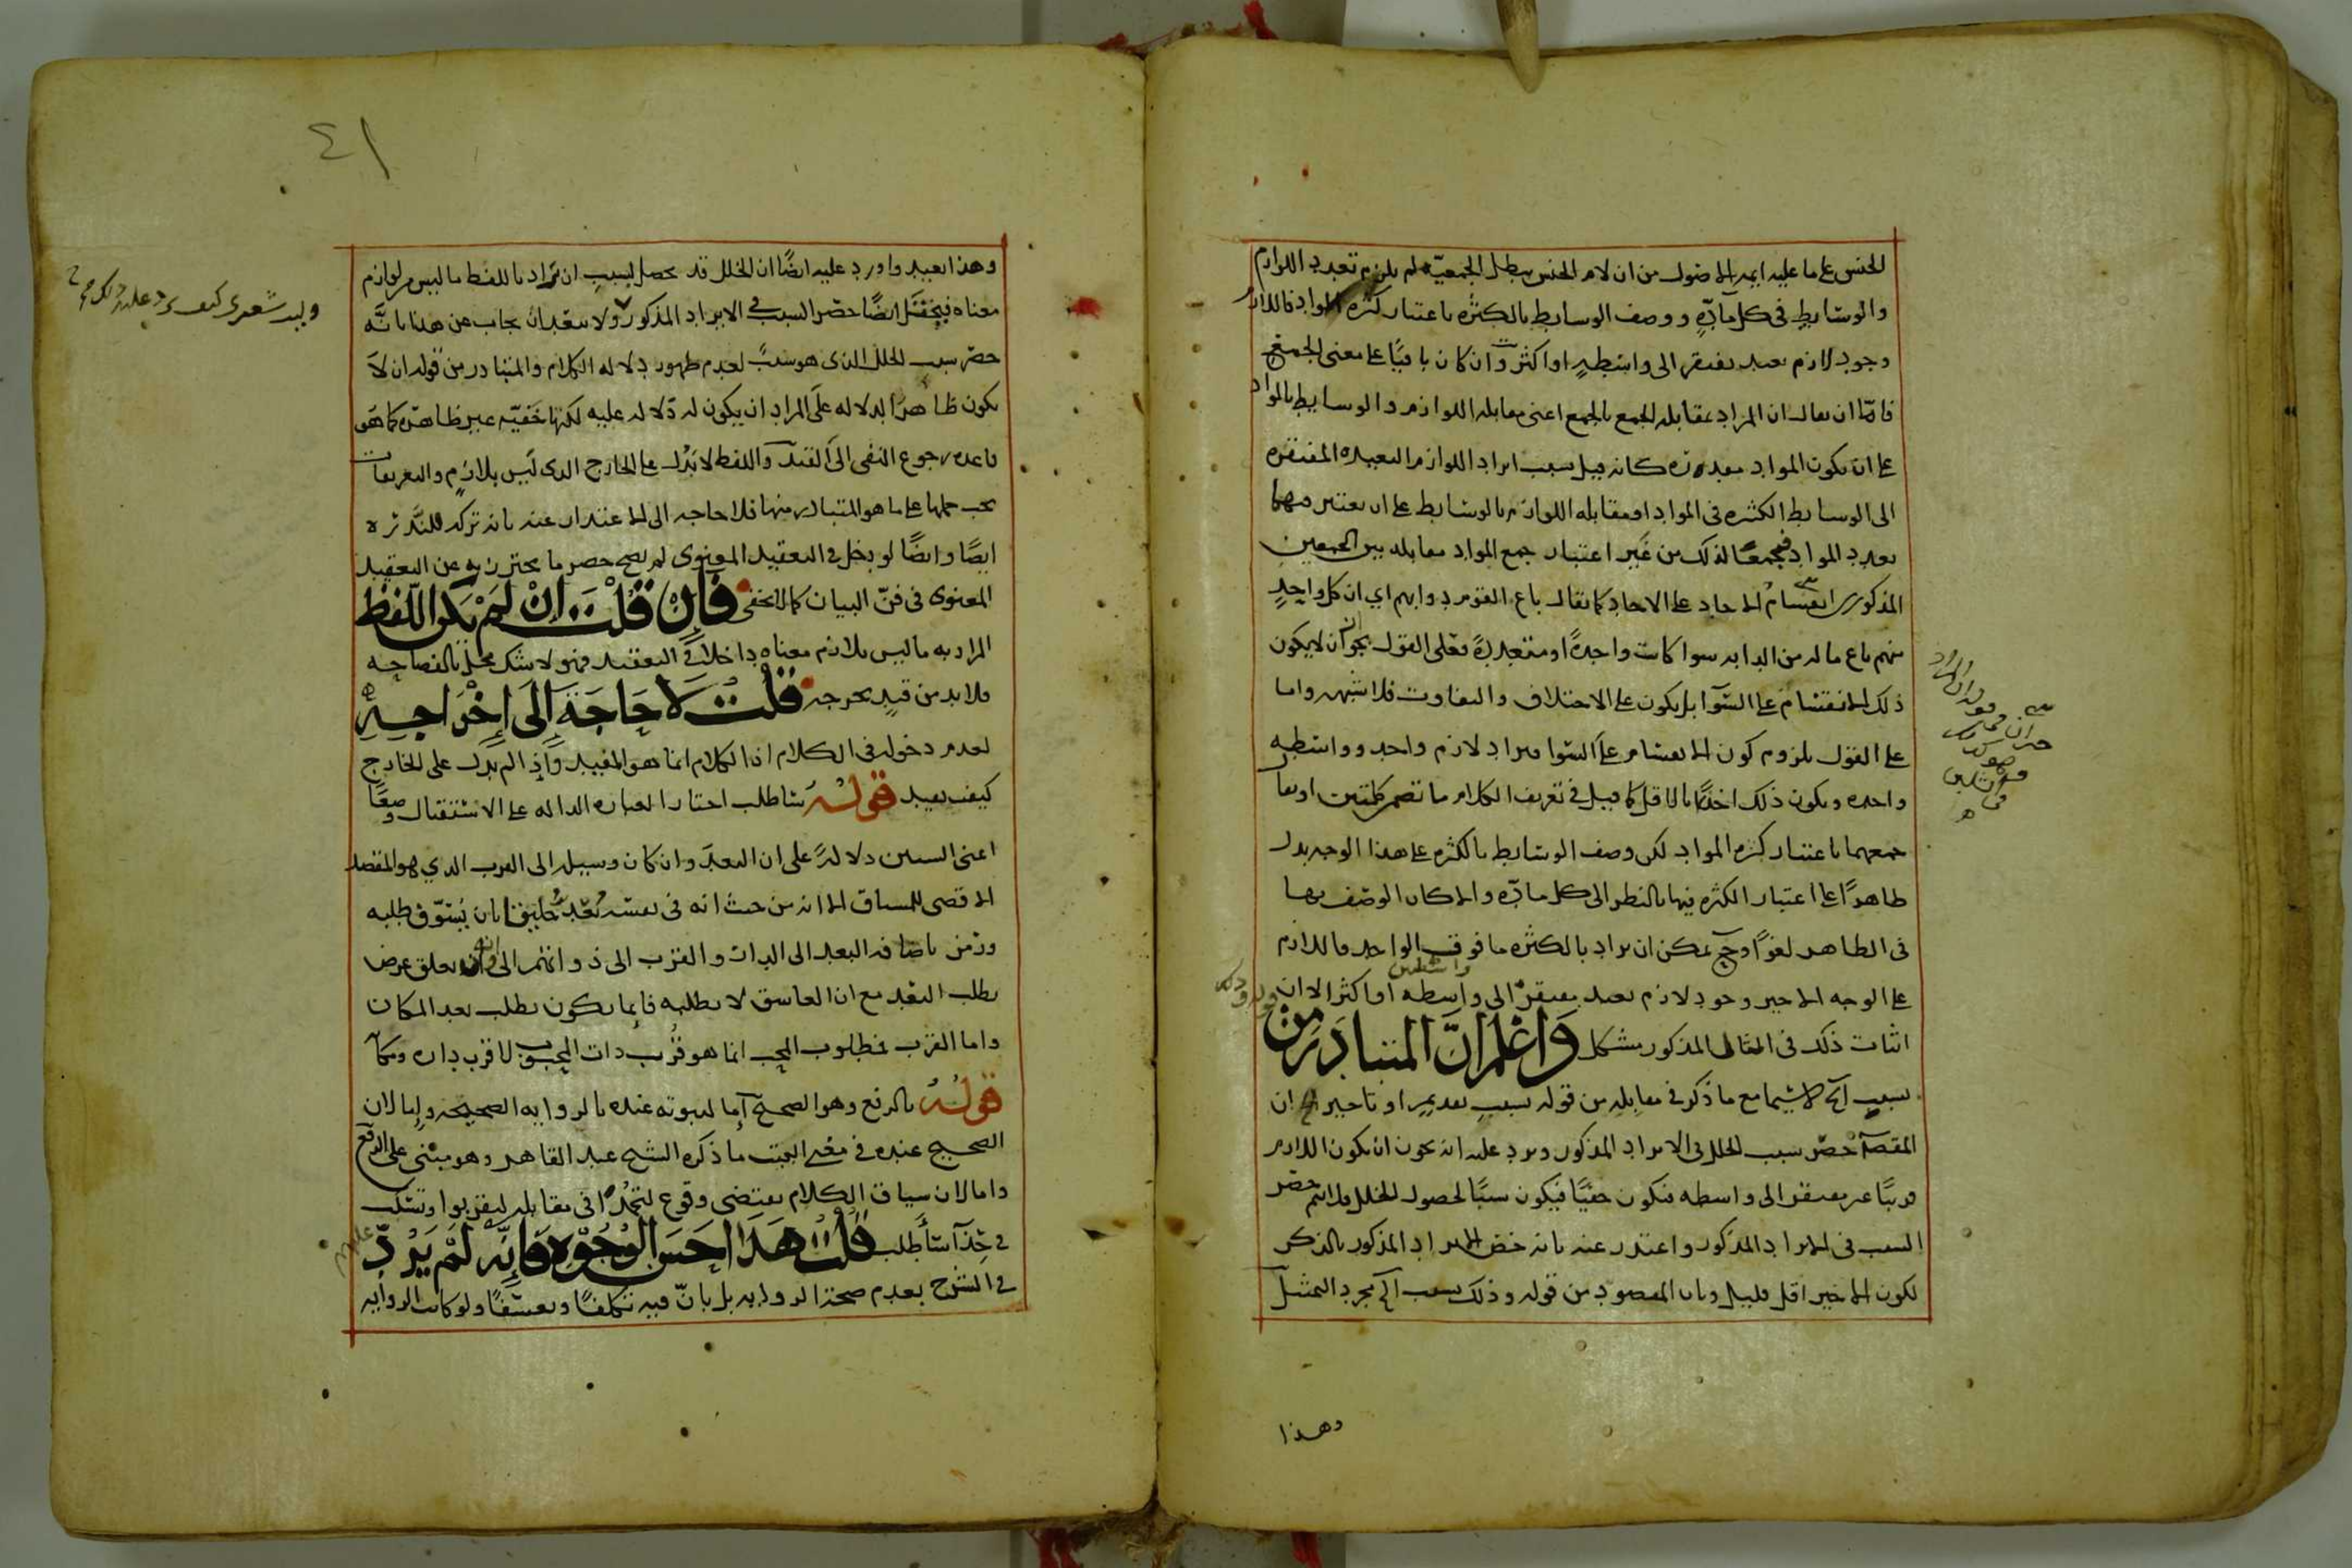 الجنس على ما عليه ايمه الاصول من ان لام الجنس يبطل الجمعية لم يلزم تعدد اللوازم
والوسايط في كل مادة ووصف الوسايط بالكثره باعتبار كثره المواد فاللازم
وجود لازم بعيد يفتقر الى واسطة او اكثر وان كان باقيا على معنى الجمع
فاما ان يقال ان المراد مقابله الجمع بالجمع اعني مقابله اللوازم والوسايط بالمواد
على ان يكون المواد متعدده كانه قيل بسبب ايراد اللوازم البعيده المفتقره
الى الوسايط الكثيره في المواد او مقابله اللوازم بالوسايط على ان يعتبر فيهما
تعدد المواد فيجمعا لذلك من غير اعتبار جمع المواد مقابله بين الجمعين
المذكورين انقسام الاحاد على الاحاد كما يقال باع القوم دوابهم اي ان كل واحد
منهم باع ماله من الدابه سوا كانت واحدة او متعددة فعلى القول بجواز ان لا يكون
ذلك الانقسام على السوا بل يكون على الاختلاف والتفاوت فلا شبهه واما
على القول بلزوم كون الانقسام على السوا فيراد لازم واحد وواسطه
واحده ويكون ذلك اخذا بالاقل كما قيل في تعريف الكلام ما تضمن كلمتين او يقا
جمعهما باعتبار كثره المواد لكن وصف الوسايط بالكثره على هذا الوجه يدل
ظاهرا على اعتبار الكثره فيها بالنظر الى كل مادة والا كان الوصف بها
في الظاهر لغوا وح يمكن ان يراد بالكثره ما فوق الواحد فاللازم
على الوجه الاخير وجود لازم بعيد يفتقر الى واسطه او اكثر الا ان
واسطتين
اثبات ذلك في المثال المذكور مشكل وَاعْلَم انَّ المتبادر من
بسبب الخ لا سيما مع ما ذكر في مقابله من قوله بسبب تقديم او تاخير الخ ان
المقصد حصر سبب الخلل في الايراد المذكور ويرد عليه انه يجوز ان يكون اللازم
قريبا غير مفتقر الى واسطه فيكون خفيا فيكون سببا لحصول الخلل فلا يتم حصر
السبب في الايراد المذكور واعتذر عنه بانه خص الايراد المذكور بالذكر
لكون الاخير اقل قليل وبان المقصود من قوله وذلك بسبب الخ مجرد التمثيل
وهذا
٤١
وهذا بعيد واورد عليه ايضًا ان الخلل قد يحصل بسبب ان يراد باللفظ ما ليس من لوازم
معناه فيختل ايضًا حصر السبب في الايراد المذكور ولا يبعد ان يجاب عن هذا بانَّه
حصر سبب الخلل الذي هو سبب لعدم ظهور دلاله الكلام والمتبادر من قوله ان لا
يكون ظاهر الدلاله على المراد ان يكون له دلاله عليه لكنها خفيّه غير ظاهره كما هو
قاعده رجوع النفي الى القيد واللفظ لا يدل على الخارج الذي ليس بلازم والتعريفات
يجب حملها على ما هو المتبادر منها فلا حاجه الى الاعتذار عنه بانه تركه للندره
ايضًا وايضًا لو يدخل في التعقيد المعنوي لم يصح حصر ما يحترز به عن التعقيد
المعنوى في فنّ البيان كما لا يخفى فَإِنْ قُلْتَ اِنْ لَمْ يَكُن اللّفظ
المراد به ما ليس بلازم معناه داخلا في التعقيد فهو لا شك مخل بالفصاحه
فلا بد من قيد يخرجه قُلْتُ لَا حَاجَةَ اِلَى إِخْرَاجِهِ
لعدم دخوله في الكلام اذ الكلام انما هو المفيد واذا لم يدل على الخارج
كيف يفيد قوله ساطلب اختار العباره الداله على الاستقبال وضعا
اعني السين دلالة على ان البعد وان كان وسيله الى القرب الذي هو المقصد
الاقصى للعشاق الا انه من حيث انه في نفسه بُعْدٌ خليق بان يُسَوّف طلبه
ورمز باضافه البعد الى الدار والقرب الى ذواتهم الى انه يتعلق غرض
بطلب البعد مع ان العاشق لا يطلبه فانما يكون بطلب بعد المكان
واما القرب فمطلوب المحب انما هو قُرب ذات المحبوب لا قرب داره ومكا
قوله بالرفع وهو الصحيح اما لثبوته عنده بالروايه الصحيحه واما لان
الصحيح عنده في معنى البيت ما ذكره الشيخ عبد القاهر وهو مبني على الرفع
واما لان سياق الكلام يقتضي وقوع لتجمُدا في مقابله ليقربوا وتسكب
في حذآ سأطلب قُلْتُ هَذَا احَسَنُ الوُجُوْهِ فَاِنَّه لَمْ يَرُدّ
في الشرح بعدم صحة الروايه بل بانّ فيه تكلفًا وتعسّفًا ولو كانت الروايه